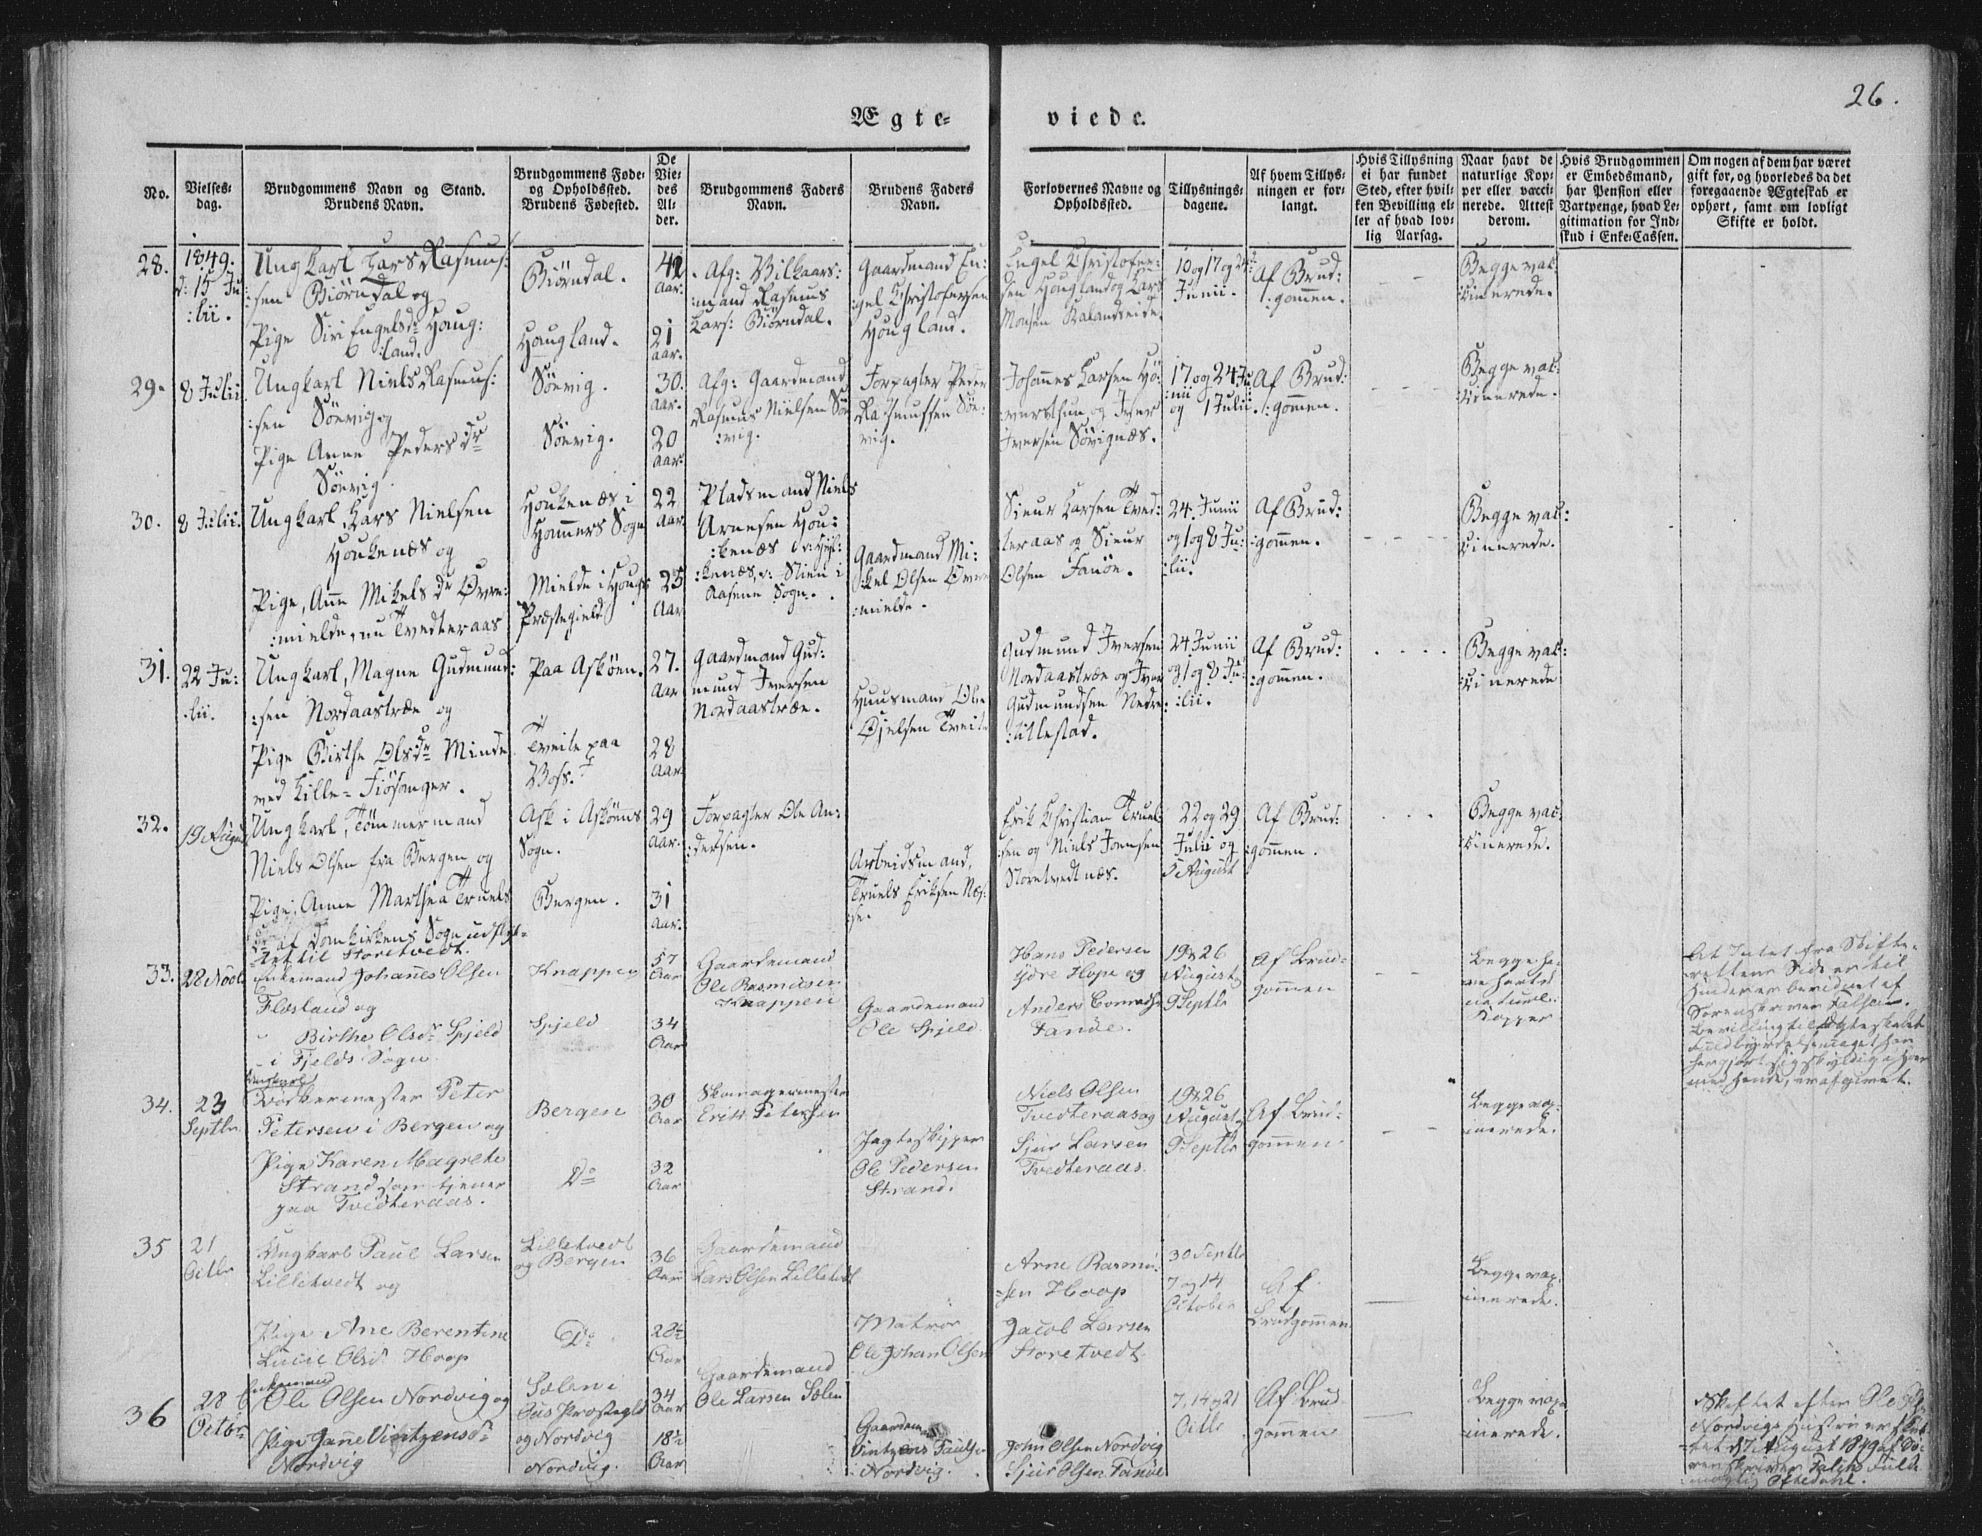 26.
Ægte-
viede.
No.
Vielses-
dag.
Brudgommens Navn og Stand.
Brudens Navn.
Brudgommens Føde-
og Opholdssted.
Brudens Fødested.
De
Vie-
des
Al-
der.
Brudgommens Faders
Navn.
Brudens Faders
Navn.
Forlovernes Navne og
Opholdssted.
Tillysnings-
dagene.
Af hvem Tillys-
ningen er for-
langt.
Hvis Tillysning
ei har fundet
Sted, efter hvil-
ken Bevilling el-
ler af hvad lov-
lig Aarsag.
Naar havt de
naturlige Kop-
per eller vacci-
nerede. Attest
derom.
Hvis Brudgommen
er Embedsmand,
har Pension eller
Vartpenge, hvad Le-
gitimation for Ind-
skud i Enke-Cassen.
Om nogen af dem har været
gift for, og hvorledes da det
foregaaende Ægteskab er
ophørt, samt om lovligt
Skifte er holdt.
28.
1849.
d: 15 Ju
:lii.
Ungkarl Lars Rasmus:
:sen Biörndal og
Pige Siri Engelsdr Houg:
:land.
Biörndal.
Hougland.
Aar.
21
Aar.
Afg: Vilkaars:
:mand Rasmus
Lars: Biörndal.
Gaardmand En:
:gel Christofersen
Hougland.
Engel Christofer:
sen Hougland og Lars
Monsen Kalandseide.
10 og 17 og 24de
Junii.
Af Brud:
:gommen.
Begge vac:
:cinerede.
29.
8 Julii.
Ungkarl Niels Rasmus:
:sen Söevig og
Pige Anne Pedersdr
Söevig.
Söevig.
Söevig.
30.
Aar.
20
Aar.
Afg: Gaardmand
Rasmus Nielsen Söe
:vig.
Forpagter Peder
Rasmussen Söe:
vig.
Johannes Larsen Hö:
:versthun og Iver
Iversen Sövignæs.
17 og 24 Ju
:nii
og 1 Julii.
Af Brud:
:gommen.
Begge vac:
:cinerede.
30.
8 Julii.
Ungkarl Lars Nielsen
Houkenæs og
Pige, Anne Mikelsdr Övre:
:mielde, nu Tvedteraas
Houkenæs i
Hammers Sogn
Mielde i Hougs
Præstegield
22
Aar
25
Aar
Pladsmand Niels
Arnesen Hou:
:kenæs
Aasene Sogn.
Gaardmand Mi:
:kel Olsen Övre
:mielde.
Sieur Larsen Tved:
teraas og Sieur
Olsen Fanöe.
24. Junii
og 1 og 8 Ju:
:lii.
Af Brud:
:gommen.
Begge vac:
:cinerede.
31.
22 Ju:
:lii.
Ungkarl, Magne Gudmund:
:sen Nordaastræe og
Pige Birthe Olsdr Minde
ved Lille-Fiösanger.
Paa Asköen.
Tveite paa
Voss.
27.
Aar
28
Aar
Gaardmand Gud:
mund Iversen
Nordaastræe.
Huusmand Ole
Tveite
Gudmund Iversen
Nordaastræe og Iver
Gudmundsen Nedre
:tillestad.
24 Junii
og 1 og 8 Ju:
:lii.
Af Brud:
:gommen.
Begge vac:
:cinerede
32.
19 August
Ungkarl, Tömmermand
Niels Olsen fra Bergen og
Pige, Anne Marthea Truels
dr af Domkirkens Sogn udflyt-
tet til Storetvedt.
Ask i Asköens
Sogn.
Bergen.
29
Aar.
31
Aar.
Forpagter Ole An:
:dersen.
Arbeidsmand,
Truels Eriksen Næs:
Erik Christian Truel:
:sen og Niels Joensen
Storetvedtnæs.
22 og 29
Julii og
5 August
Af Brud:
:gommen.
Begge vac:
:cinerede.
33.
28 Novbr
Enkemand Johannes Olsen
Flæsland og
Birthe Olsdr Spjeld
i Fjelds Sogn.
Knappen
Spjeld
57
Aar
34
Aar
Gaardemand
Ole Rasmusen
Knappen
Gaardemand
Ole Spjeld
Hans Pedersen
Ydre Hope og
Anders
Fanöe.
19 & 26
August
9 Septbr
Af Brud-
gommen
Begge ha-
ve havt
naturl:
Kopper
At Intet fra Skifte-
rettens Side er til
Hinder er bevidnet af
Sorenskriver
Bevilling til Ægteskabet
34.
23
Septbr.
Ungkarl
Petersen i Bergen og
Pige Karen Magrete
Strand som tjener
paa Tvedteraas.
Bergen
Do
30
Aar
32
Aar
Skomagermester
Erik Petersen
Jagteskipper
Ole Pedersen
Strand.
Niels Olsen
Tvedteraas og
Sjur Larsen
Tvedteraas.
19 & 26
August
9 Septbr
Af Brud-
gommen
Begge vax-
inerede.
35
21
Octbr
Ungkarl Paul Larsen
Lilletvedt og
Pige Ane Berentine
Lucie Olsdr Hoop
Lilletvedt
og Bergen
Do
36
Aar
28½
Aar
Gaardemand
Lars Olsen Lilletvedt
Matros
Ole Johan Olsen
Arne Rasmu-
-sen Hoop
Jacob Larsen
Storetvedt
30 Septbr
7 og 14
October
Af
Brudgommen
Begge vax-
inerede.
36
28
Octbr
Enkemand
Ole Olsen Nordvig og
Pige Janne Vintzensdr
Nordvig
Sælen i
Præstegjeld
og Nordvig
Nordvig.
34
Aar
18½
Aar
Gaardemand
Ole Larsen Sælen
Gaardem
Vintzens Paulsen
Nordvig.
John Olsen Nordvig
Sjur Olsen Fanöe
7, 14 og 21
Octbr
Af Brud-
gommen
Begge vax-
inerede.
Skiftet efter Ole
Nordvigs Hustru er